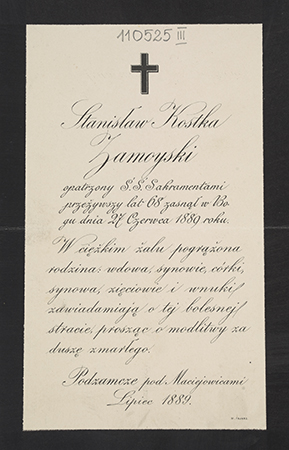 110525 III
Stanisław Kostka
Zamoyski
opatrzony Ś.Ś. Sakramentami
przeżywszy lat 68 zasnął w Bo
gu dnia 27 Czerwca 1889 roku.
W ciężkim żalu pogrążona
rodzina: wdowa, synowie, córki,
synowa, zięciowie i wnuki
zawiadamiają o tej bolesnej
stracie, prosząc o modlitwy za
duszę zmarłego.
Podzamcze pod Maciejowicami
Lipiec 1889.